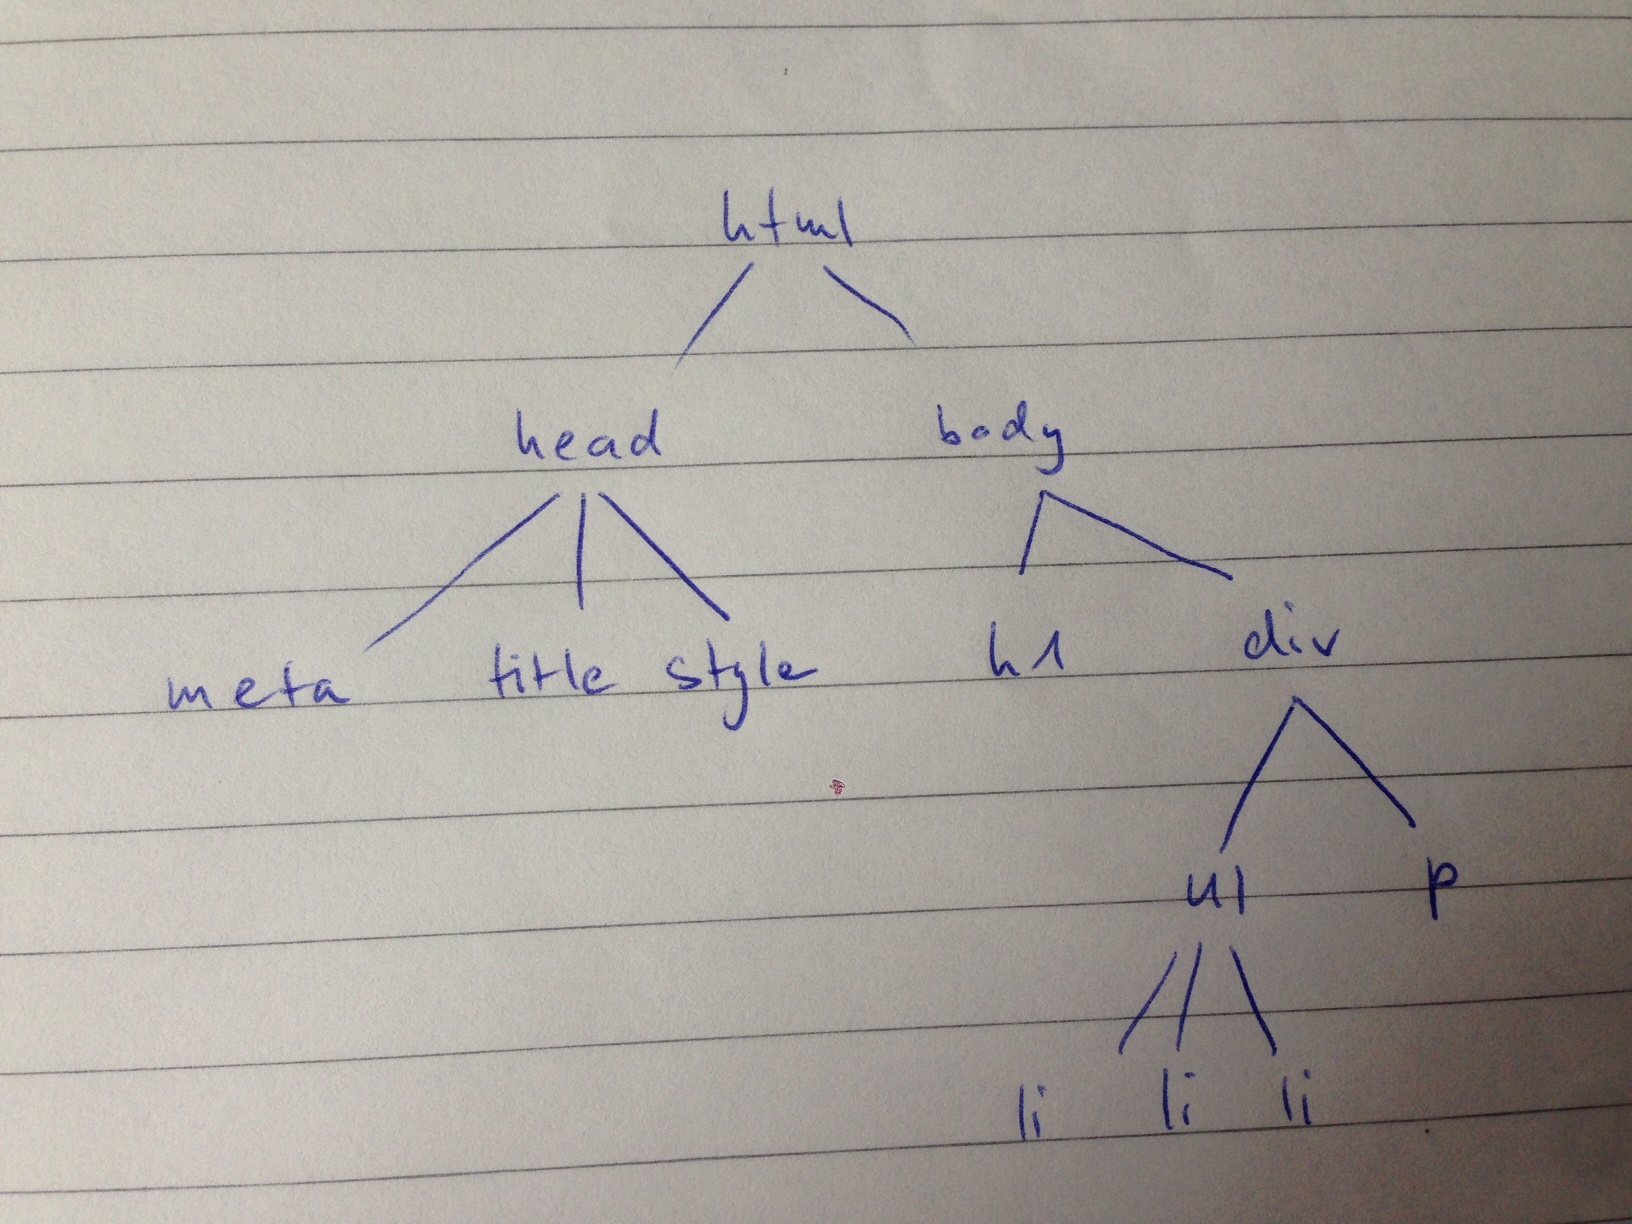 html
head body
meta title style h1 div
ul p
li li li